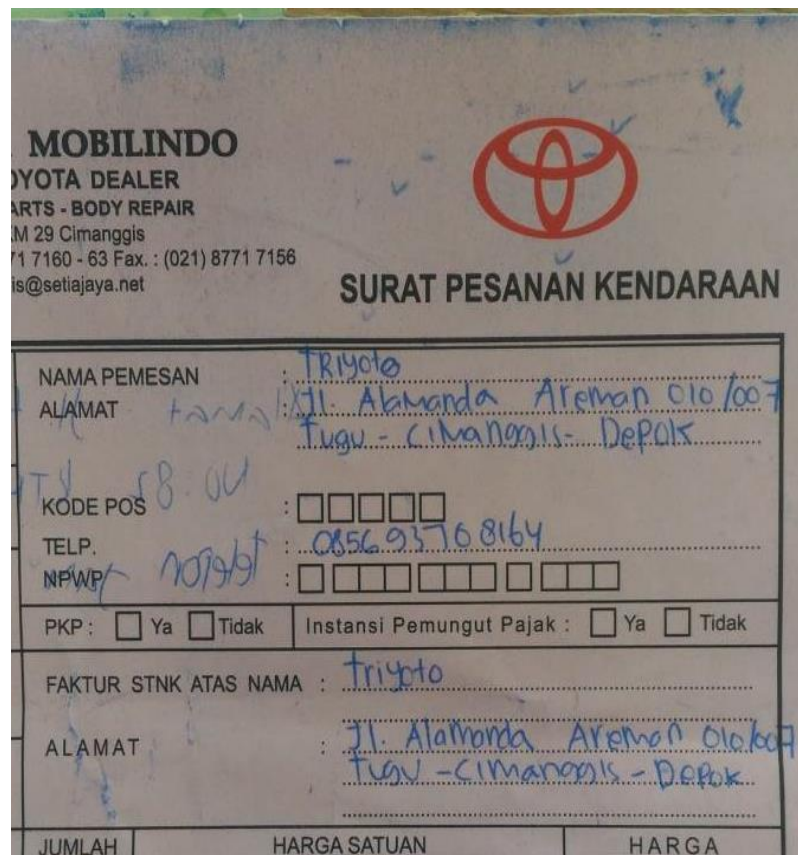 MOBILINDO
OYOTA DEALER
ARTS - BODY REPAIR
KM 29 Cimanggis
71 7160 - 63 Fax. : (021) 8771 7156
is@setiajaya.net
SURAT PESANAN KENDARAAN
NAMA PEMESAN : TRIYOTO
ALAMAT : Jl. Alamanda Areman 010/007
Tugu - Cimanggis - Depok
KODE POS :
TELP. : 085693768164
NPWP :
PKP : Ya Tidak Instansi Pemungut Pajak : Ya Tidak
FAKTUR STNK ATAS NAMA : Triyoto
ALAMAT : Jl. Alamanda Areman 010/007
Tugu - Cimanggis - Depok
JUMLAH HARGA SATUAN HARGA